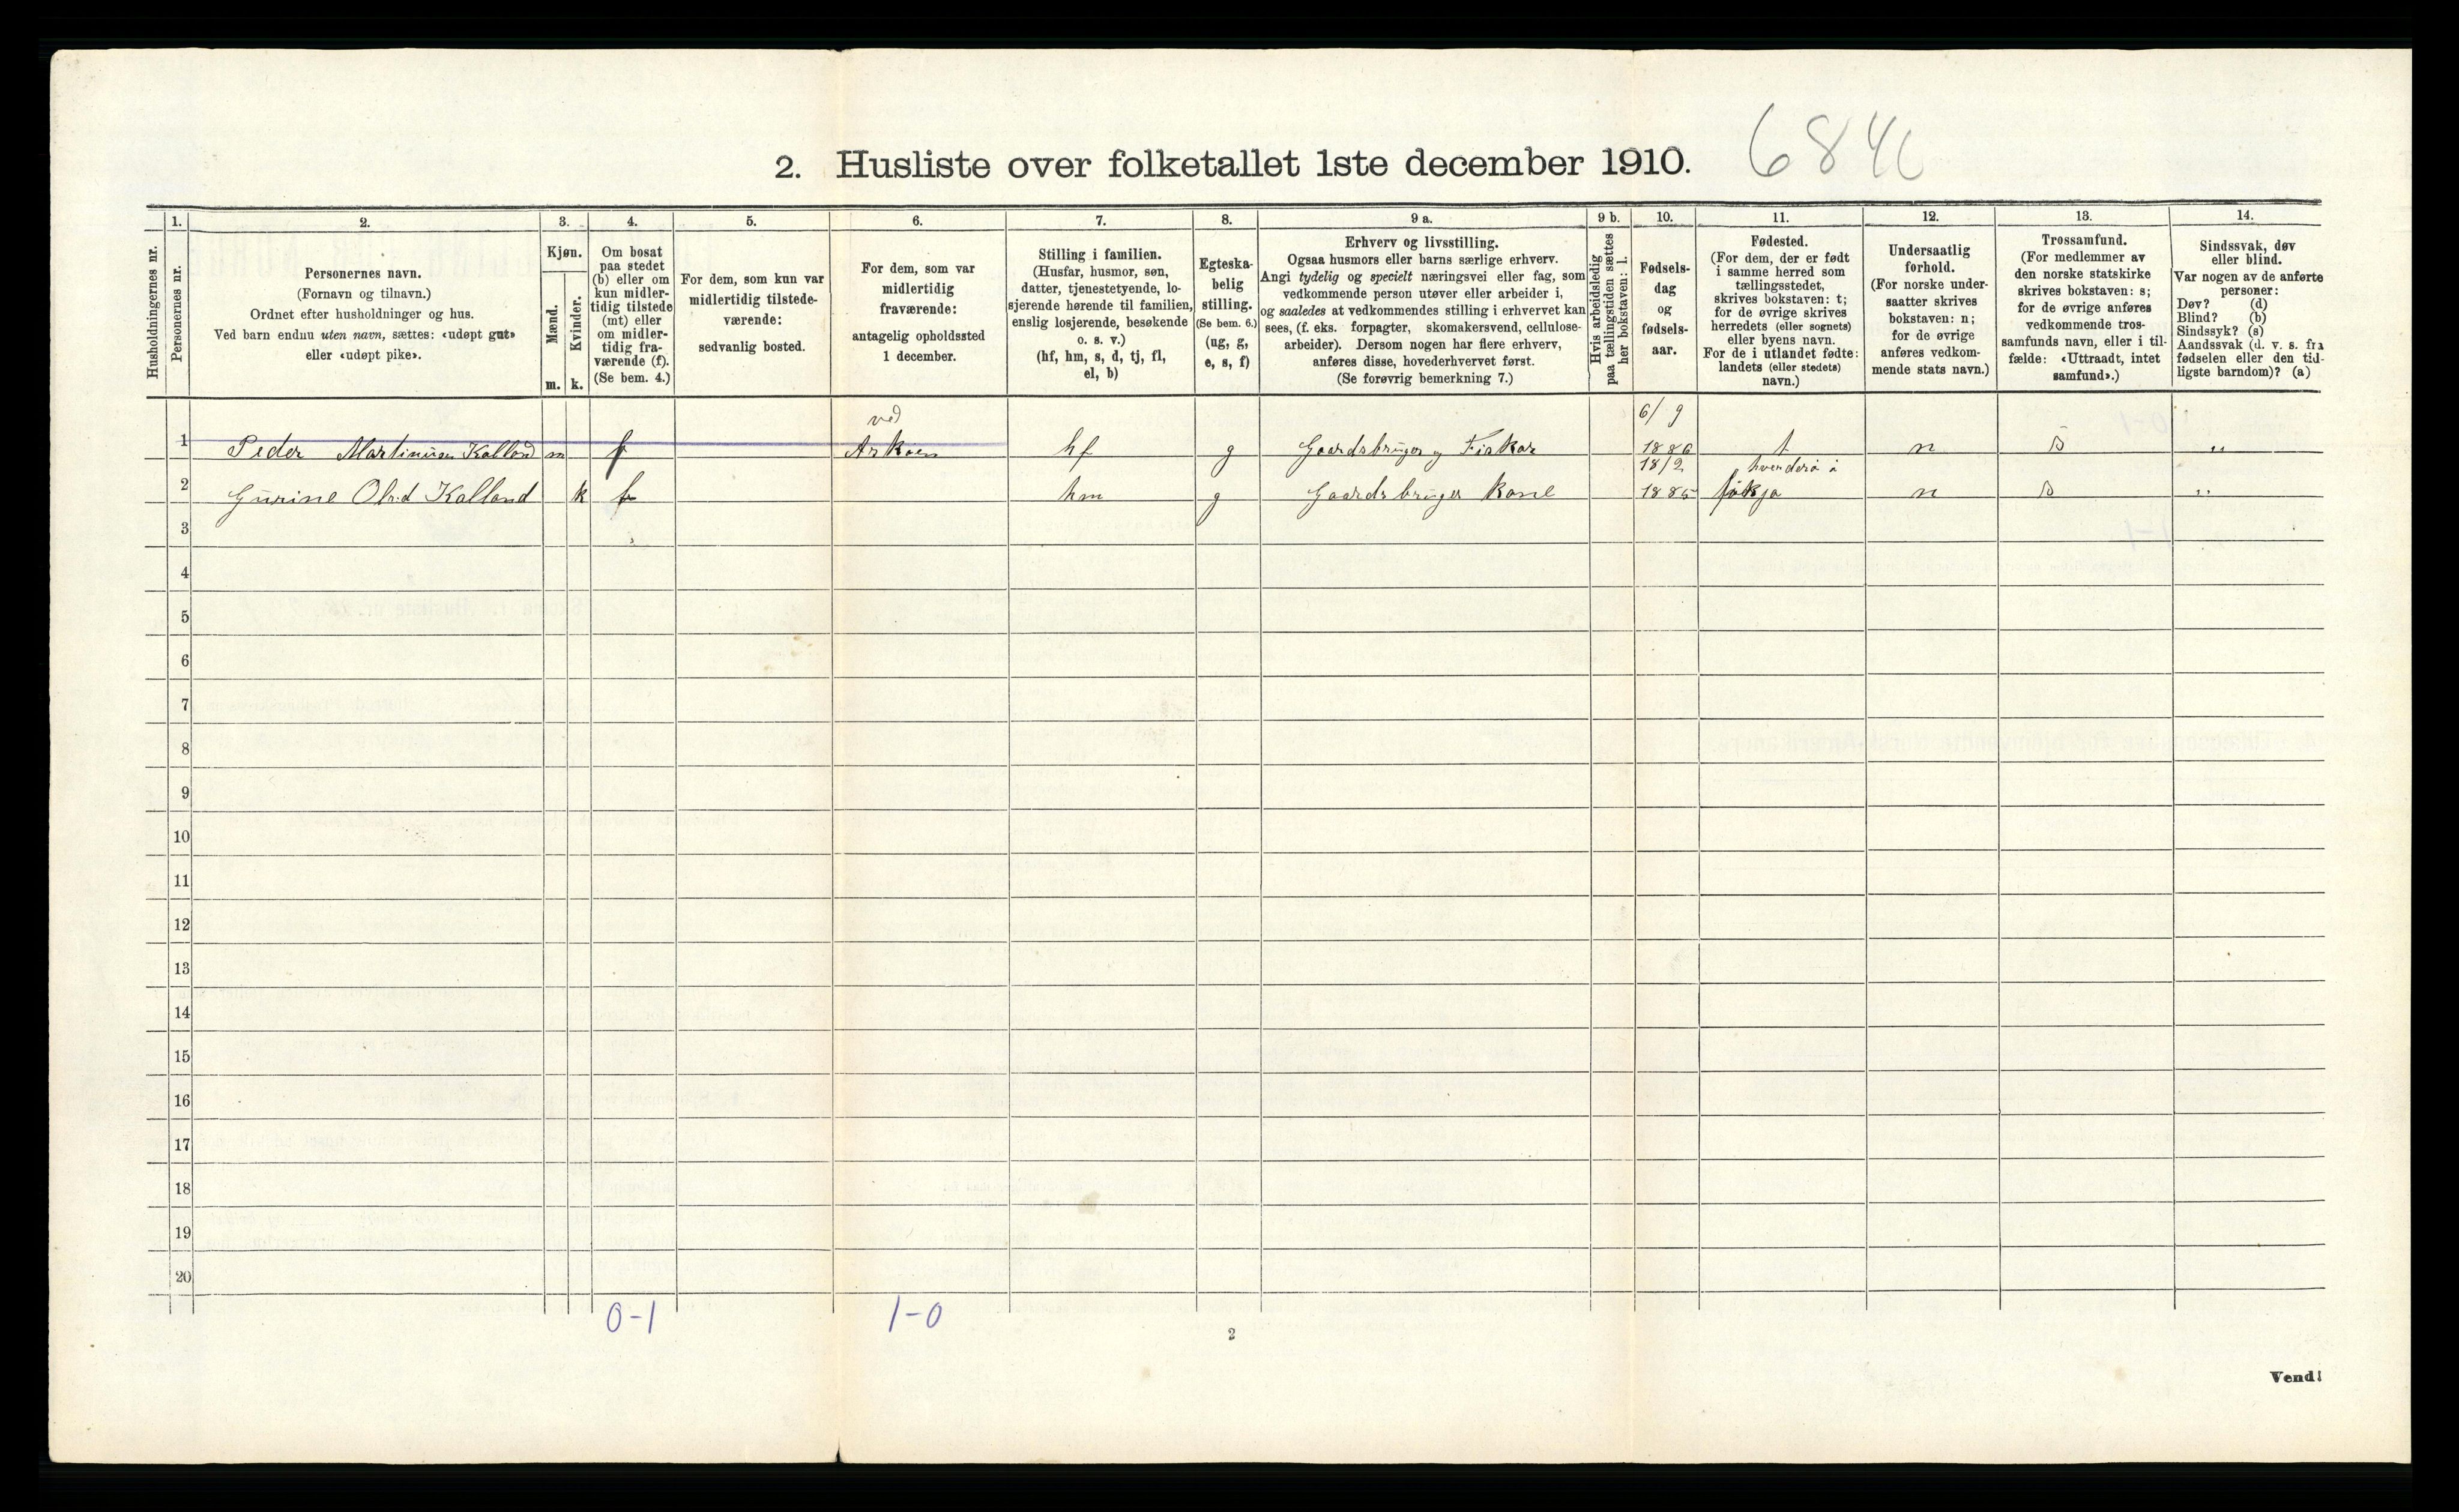 2. Husliste over folketallet 1ste december 1910. 6840
Husholdningernes nr.
1.
Personernes nr.
2.
Personernes navn.
(Fornavn og tilnavn.)
Ordnet efter husholdninger og hus.
Ved barn endnu uten navn, sættes: «udøpt gut»
eller «udøpt pike».
3.
Kjøn.
Mænd.
Kvinder.
m. k.
4.
Om bosat
paa stedet
(b) eller om
kun midler-
tidig tilstede
(mt) eller
om midler-
tidig fra-
værende (f).
(Se bem. 4.)
5.
For dem, som kun var
midlertidig tilstede-
værende:
sedvanlig bosted.
6.
For dem, som var
midlertidig
fraværende:
antagelig opholdssted
1 december.
7.
Stilling i familien.
(Husfar, husmor, søn,
datter, tjenestetyende, lo-
sjerende hørende til familien,
enslig losjerende, besøkende
o. s. v.)
(hf, hm, s, d, tj, fl,
el, b)
8.
Egteska-
belig
stilling.
(Se bem. 6.)
(ug, g,
e, s, f)
9 a.
Erhverv og livsstilling.
Ogsaa husmors eller barns særlige erhverv.
Angi tydelig og specielt næringsvei eller fag, som
vedkommende person utøver eller arbeider i,
og saaledes at vedkommendes stilling i erhvervet kan
sees, (f. eks. forpagter, skomakersvend, cellulose-
arbeider). Dersom nogen har flere erhverv,
anføres disse, hovederhvervet først.
(Se forøvrig bemerkning 7.)
9 b.
Hvis arbeidsledig
paa tællingstiden sættes
her bokstaven: l.
10.
Fødsels-
dag
og
fødsels-
aar.
11.
Fødested.
(For dem, der er født
i samme herred som
tællingsstedet,
skrives bokstaven: t;
for de øvrige skrives
herredets (eller sognets)
eller byens navn.
For de i utlandet fødte:
landets (eller stedets)
navn.)
12.
Undersaatlig
forhold.
(For norske under-
saatter skrives
bokstaven: n;
for de øvrige
anføres vedkom-
mende stats navn.)
13.
Trossamfund.
(For medlemmer av
den norske statskirke
skrives bokstaven: s;
for de øvrige anføres
vedkommende tros-
samfunds navn, eller i til-
fælde: «Uttraadt, intet
samfund».)
14.
Sindssvak, døv
eller blind.
Var nogen av de anførte
personer:
Døv? (d)
Blind? (b)
Sindssyk? (s)
Aandssvak (d. v. s. fra
fødselen eller den tid-
ligste barndom)? (a)
ved 6/9
1 Peder Martinusen Kalland m f Askøen hf g Gaardsbruger og Fisker 1886 t n s „
18/2
2 Gurine Ol.d Kalland k hm g Gaardsbruger Kone 1885 n s „
3
4
5
6
7
8
9
10
11
12
13
14
15
16
17
18
19
20
0-1 1-0
2
Vend!